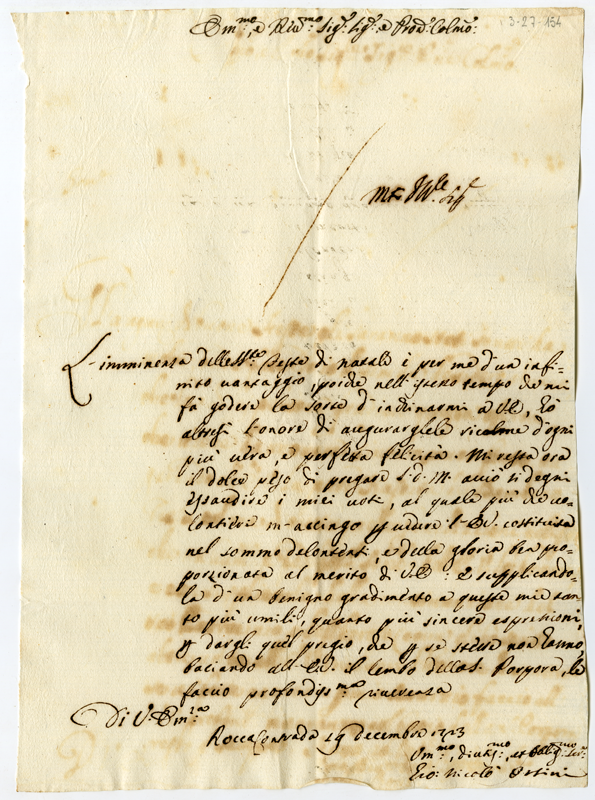 Em.mo, e Riv.mo Sig.r Sig.r e Pron. Colmo.
3-27-154
L'imminenza delle SS.te feste di natale è per me d'un infi=
nito vantaggio, poiche nell'istesso tempo che mi
fà godere la sorte d'inchinarmi a VE, hò
altresi l'onore di augurarglele ricolme d'ogni
più vera, e perfetta felicità. Mi resta ora
il dolce peso di pregare S.D.M. acciò si degni
esaudire i miei voti, al quale più che vo=
lontieri m'accingo p vedere l'EV. costituita
nel sommo de contenti, e della gloria ben pro=
porzionata al merito di VE: E supplicando=
la d'un benigno gradimento a queste mie tan=
to più umili, quanto più sincere espressioni,
p dargli quel pregio, che p se stesse non hanno
baciando all'EV. il lembo della S. Porpora, le
faccio profondiss.mo riverenza
Di V. Em.za
Rocca Conrada 19 decembre 1713
Um.mo, divotis.mo, et Oblig.mo Ser.
Gio: Nicolò Orsini